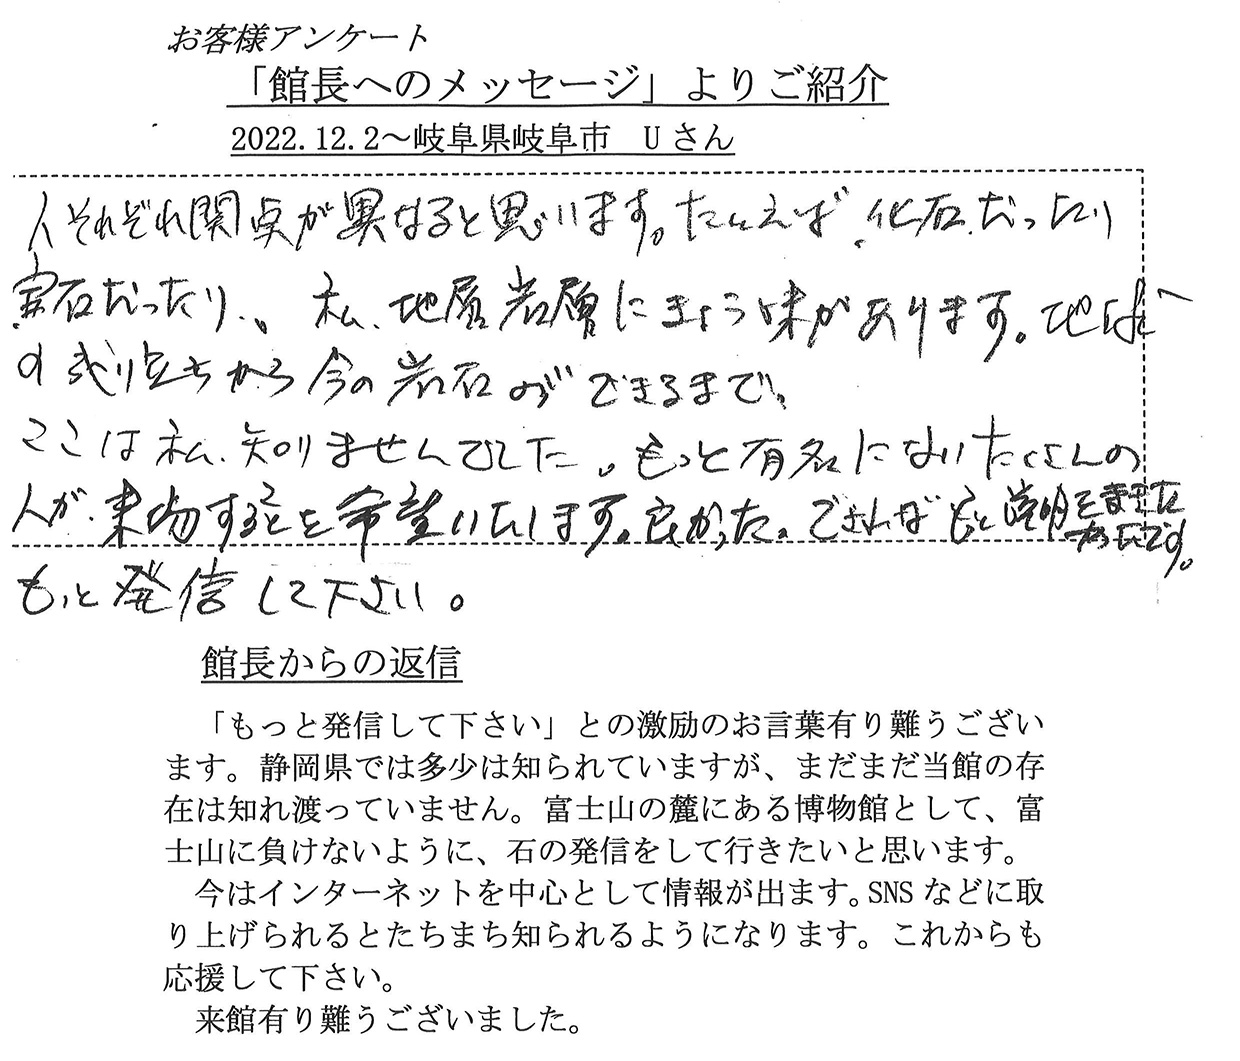 お客様アンケート
「館長へのメッセージ」よりご紹介
2022.12.2～岐阜県岐阜市　Uさん
人それぞれ関点が異なると思います。たとえば、化石だったり
宝石だったり、、私、地層岩層にきょう味があります。地
の成り立ちから今の岩石ができるまで、
ここは私、知りませんでした。もっと有名になりたくさんの
人が、来物することを希望いたします。良かった。できればもっと説明を
もっと発信して下さい。
館長からの返信
「もっと発信して下さい」との激励のお言葉有り難うござい
ます。静岡県では多少は知られていますが、まだまだ当館の存
在は知れ渡っていません。富士山の麓にある博物館として、富
士山に負けないように、石の発信をして行きたいと思います。
今はインターネットを中心として情報が出ます。SNSなどに取
り上げられるとたちまち知られるようになります。これからも
応援して下さい。
来館有り難うございました。